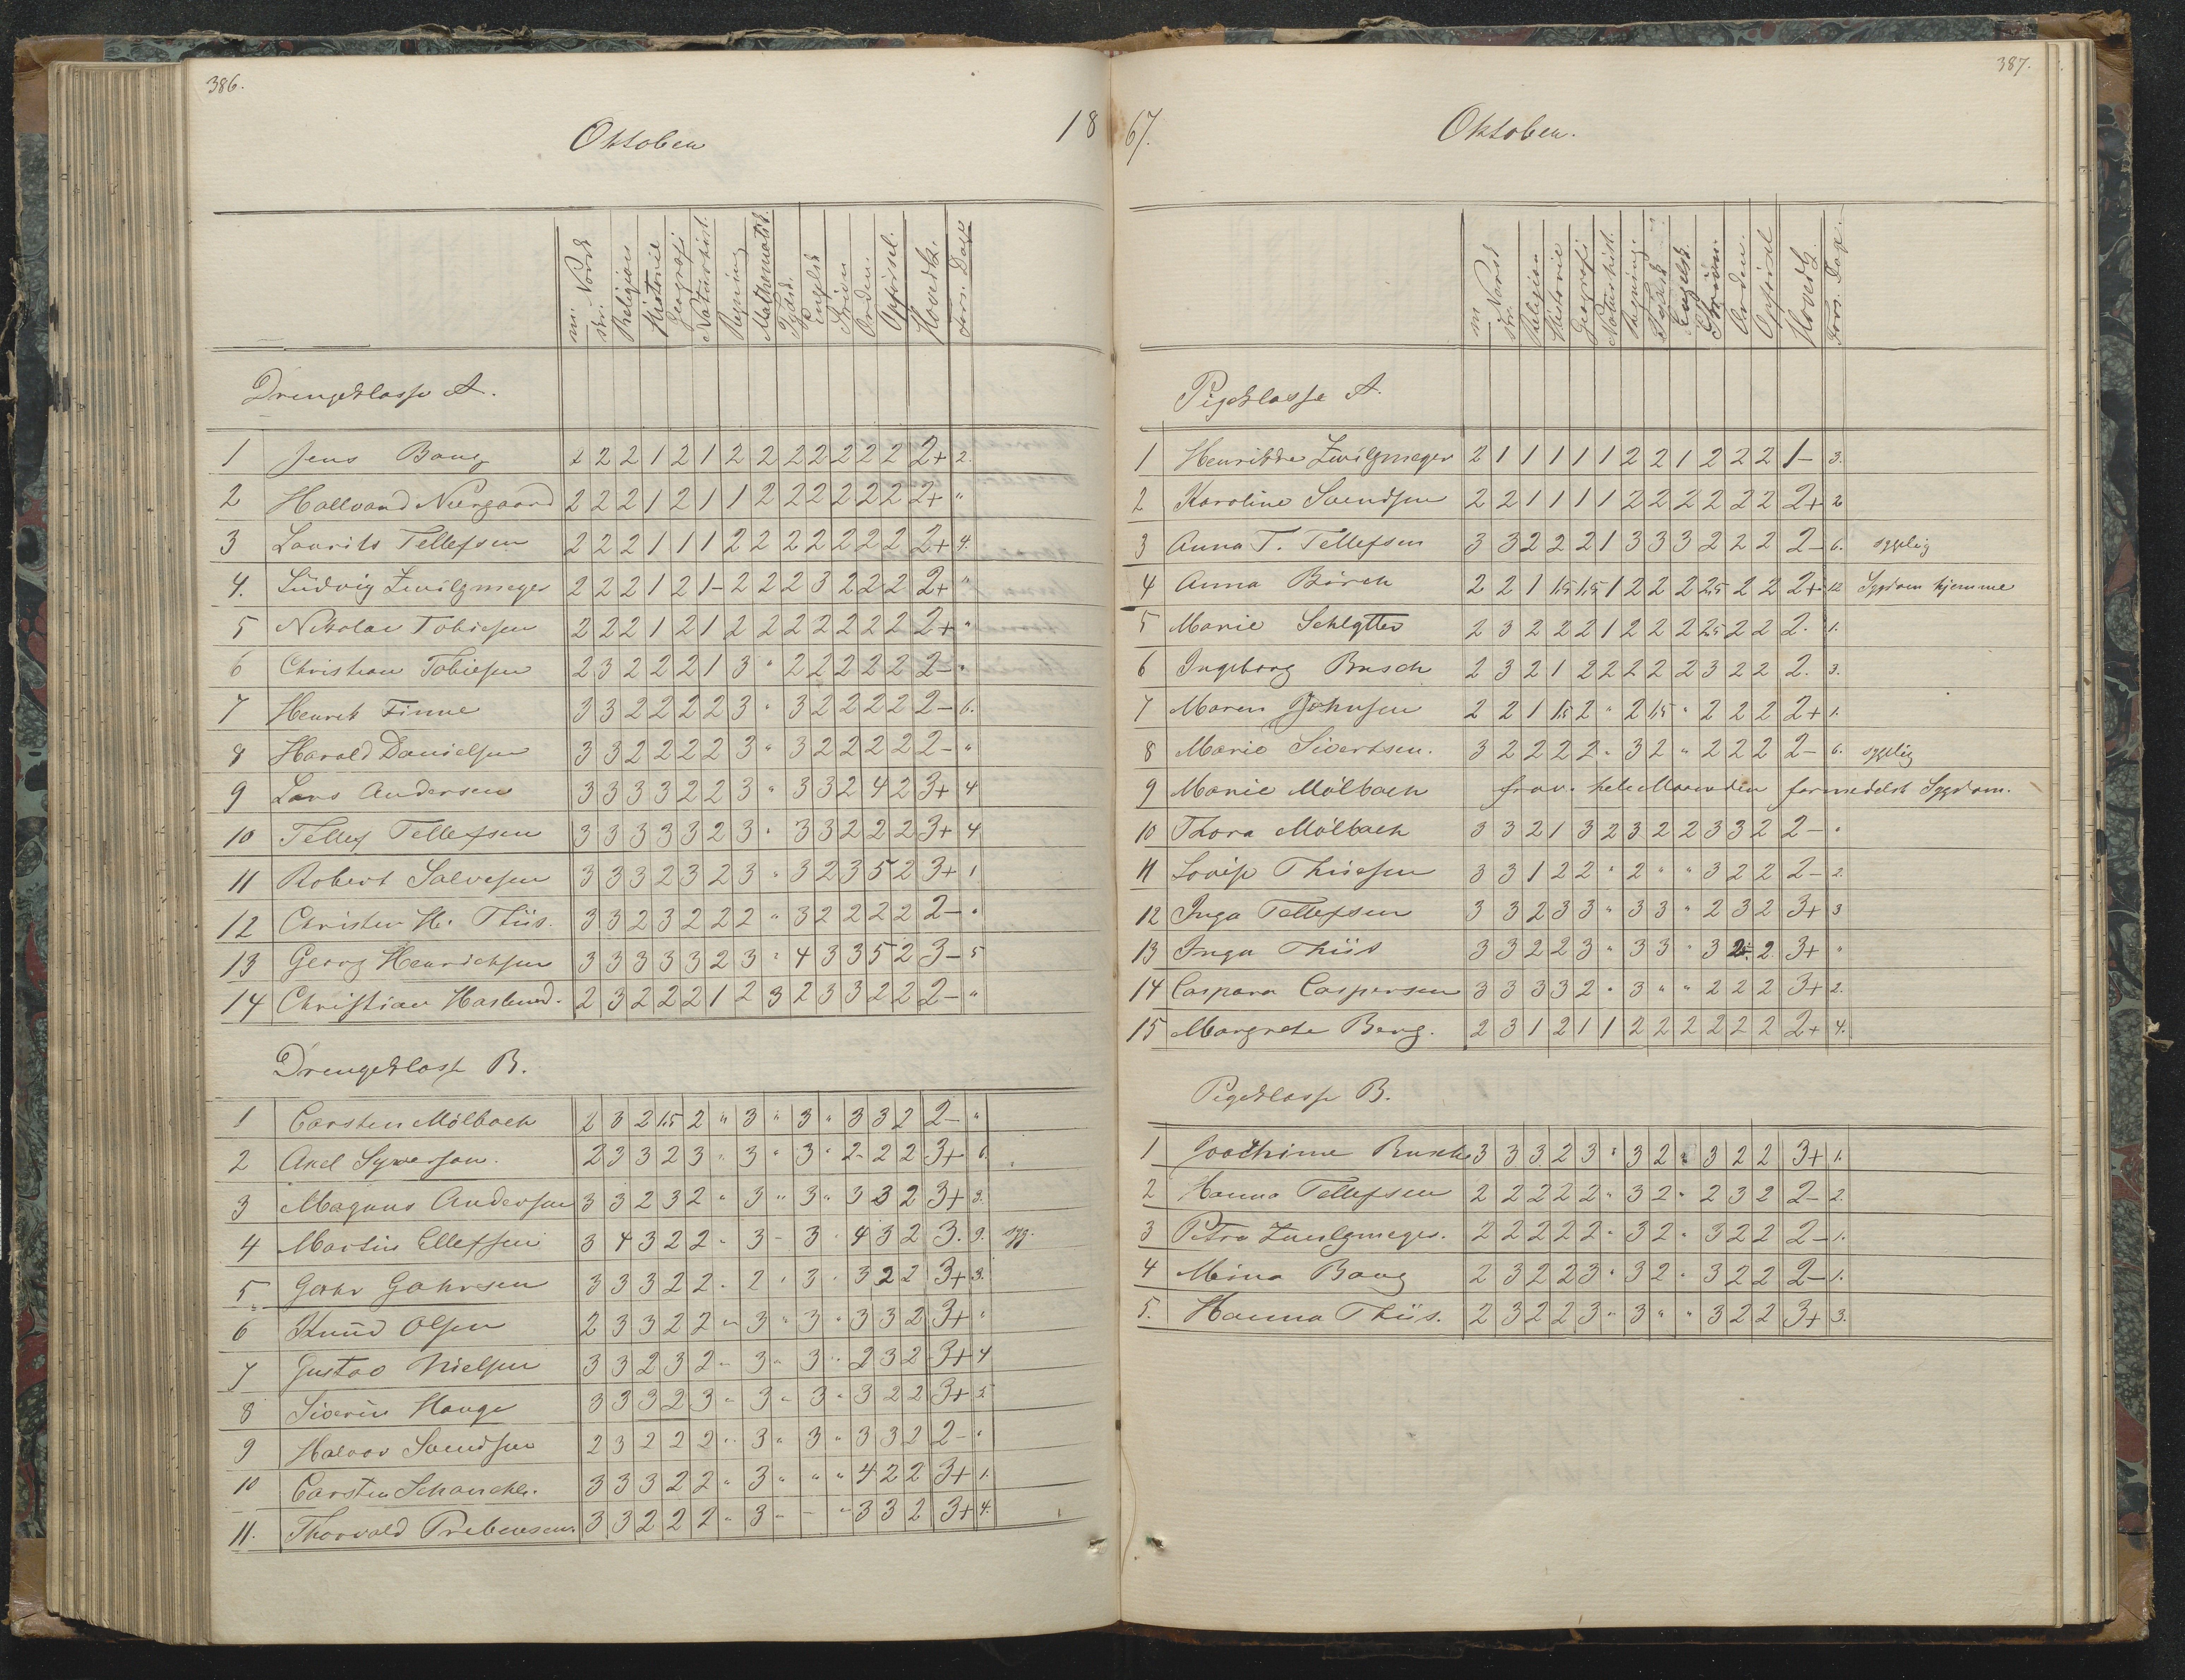 386.
Oktober
18
m. Norsk
skr.
Religion
Historie
Geografi
Naturhist.
Regning
Mathematik
Tydsk
Engelsk
Skriven
Orden.
Opførsel.
Hovedk.
Fors. Dage
Drengeklasse A.
1 Jens Bang 2 2 2 1 2 1 2 2 2 2 2 2 2 2+ 2.
2 Hallvard Neergaard 2 2 2 1 2 1 1 2 2 2 2 2 2 2+ "
3 Laurits Tellefsen 2 2 2 1 1 1 2 2 2 2 2 2 2 2+ 4.
4. Ludvig Zwilgmeyer 2 2 2 1 2 1- 2 2 2 3 2 2 2 2+ "
5 Nikolai Tobiesen 2 2 2 1 2 1 2 2 2 2 2 2 2 2+ "
6 Christian Tobiesen 2 3 2 2 2 1 3 " 2 2 2 2 2 2- "
7 Henrik Finne 3 3 2 2 2 2 3 " 3 2 2 2 2 2- 6.
8 Harald Danielsen 3 3 2 2 2 2 3 " 3 2 2 2 2 2- "
9 Lars Andersen 3 3 3 3 2 2 3 " 3 3 2 4 2 3+ 4
10 Tellef Tellefsen 3 3 3 3 3 2 3 " 3 3 2 2 2 3+ 4
11 Robert Salvesen 3 3 3 2 3 2 3 " 3 2 3 5 2 3+ 1
12 Christen H. Thiis. 3 3 2 3 2 2 2 " 3 2 2 2 2 2- "
13 Georg Henrichsen 3 3 3 3 3 2 3 " 4 3 3 5 2 3- 5
14 Christian Haslund. 2 3 2 2 2 1 2 3 2 3 3 2 2 2- "
Drengeklasse B.
1 Carsten Mölbach 2 3 2 1.5 2 " 3 " 3 " 3 3 2 2- "
2 Axel Syversen. 2 3 3 2 3 " 3 " 3 " 2 2 2 3+ 6.
3 Magnus Andersen 3 3 2 3 2 " 3 " 3 " 3 3 2 3+ 3.
4 Martin Ellefsen 3 4 3 2 2 " 3 - 3 " 4 3 2 3. 9. syg.
5 Gahr Gahrsen 3 3 3 2 2 " 2 " 3 " 3 2 2 3+ 3.
6 Knud Olsen 2 3 3 2 2 " 3 " 3 " 3 3 2 3+ "
7 Gustav Nielsen 3 3 2 3 2 " 3 " 3 " 2 3 2 3+ 4
8 Siverin Hauge 3 3 3 2 3 " 3 " 3 " 3 2 2 3+ 5
9 Halvor Svendsen 2 3 2 2 2 " 3 " 3 " 3 3 2 2- "
10 Carsten Schanche. 3 3 3 2 2 " 3 " " " 4 2 2 3+ 1.
11. Thorvald Prebensen. 3 3 2 2 2 " 3 " - " 3 3 2 3+ 4.
387.
67.
Oktober.
m Norsk
skr.
Religion
Historie
Geografi
Naturhist.
Regning
Tydsk
Engelsk
Skriven
Orden.
Opførsel
Hovedk.
Fors. Dage.
Pigeklasse A.
1 Henrikke Zwilgmeyer 2 1 1 1 1 1 2 2 1 2 2 2 1- 3.
2 Karoline Svendsen 2 2 1 1 1 1 2 2 2 2 2 2 2+ 2
3 Anna T. Tellefsen 3 3 2 2 2 1 3 3 3 2 2 2 2- 6. sygelig
4 Anna Börch 2 2 1 1.5 1.5 1 2 2 2 2.5 2 2 2+ 12 Sygdom hjemme
5 Marie Schlytter 2 3 2 2 2 1 2 2 2 2.5 2 2 2. 1.
6 Ingeborg Busch 2 3 2 1 2 2 2 2 2 3 2 2 2. 3.
7 Maren Johnsen 2 2 1 1.5 2 " 2 1.5 " 2 2 2 2+ 1.
8 Marie Sivertsen. 3 2 2 2 2 " 3 2 " 2 2 2 2- 6. sygelig
9 Marie Mölbach frav. hele Maaneden formedelst Sygdom.
10 Thora Mölbach 3 3 2 1 3 2 3 2 2 3 3 2 2- "
11 Lovise Thiisen 3 3 1 2 2 " 2 " " 3 2 2 2- 2.
12 Inga Tellefsen 3 3 2 3 3 " 3 3 " 2 3 2 3+ 3
13 Inga Thiis 3 3 2 2 3 " 3 3 " 3 2. 2 3+ "
14 Caspara Caspersen 3 3 3 3 2 " 3 " " 2 2 2 3+ 2.
15 Margrete Berg. 2 3 1 2 1 1 2 2 2 2 2 2 2+ 4.
Pigeklasse B.
1 Joachime Busch 3 3 3 2 3 " 3 2 " 3 2 2 3+ 1.
2 Hanna Tellefsen 2 2 2 2 2 " 3 2 " 2 3 2 2- 2.
3 Petra Zwilgmeyer. 2 2 2 2 2 " 3 2 " 3 2 2 2- 1.
4 Mina Bang 2 3 2 2 3 " 3 2 " 3 2 2 2- 1.
5. Hanna Thiis. 2 3 2 2 3 " 3 " " 3 2 2 3+ 3.